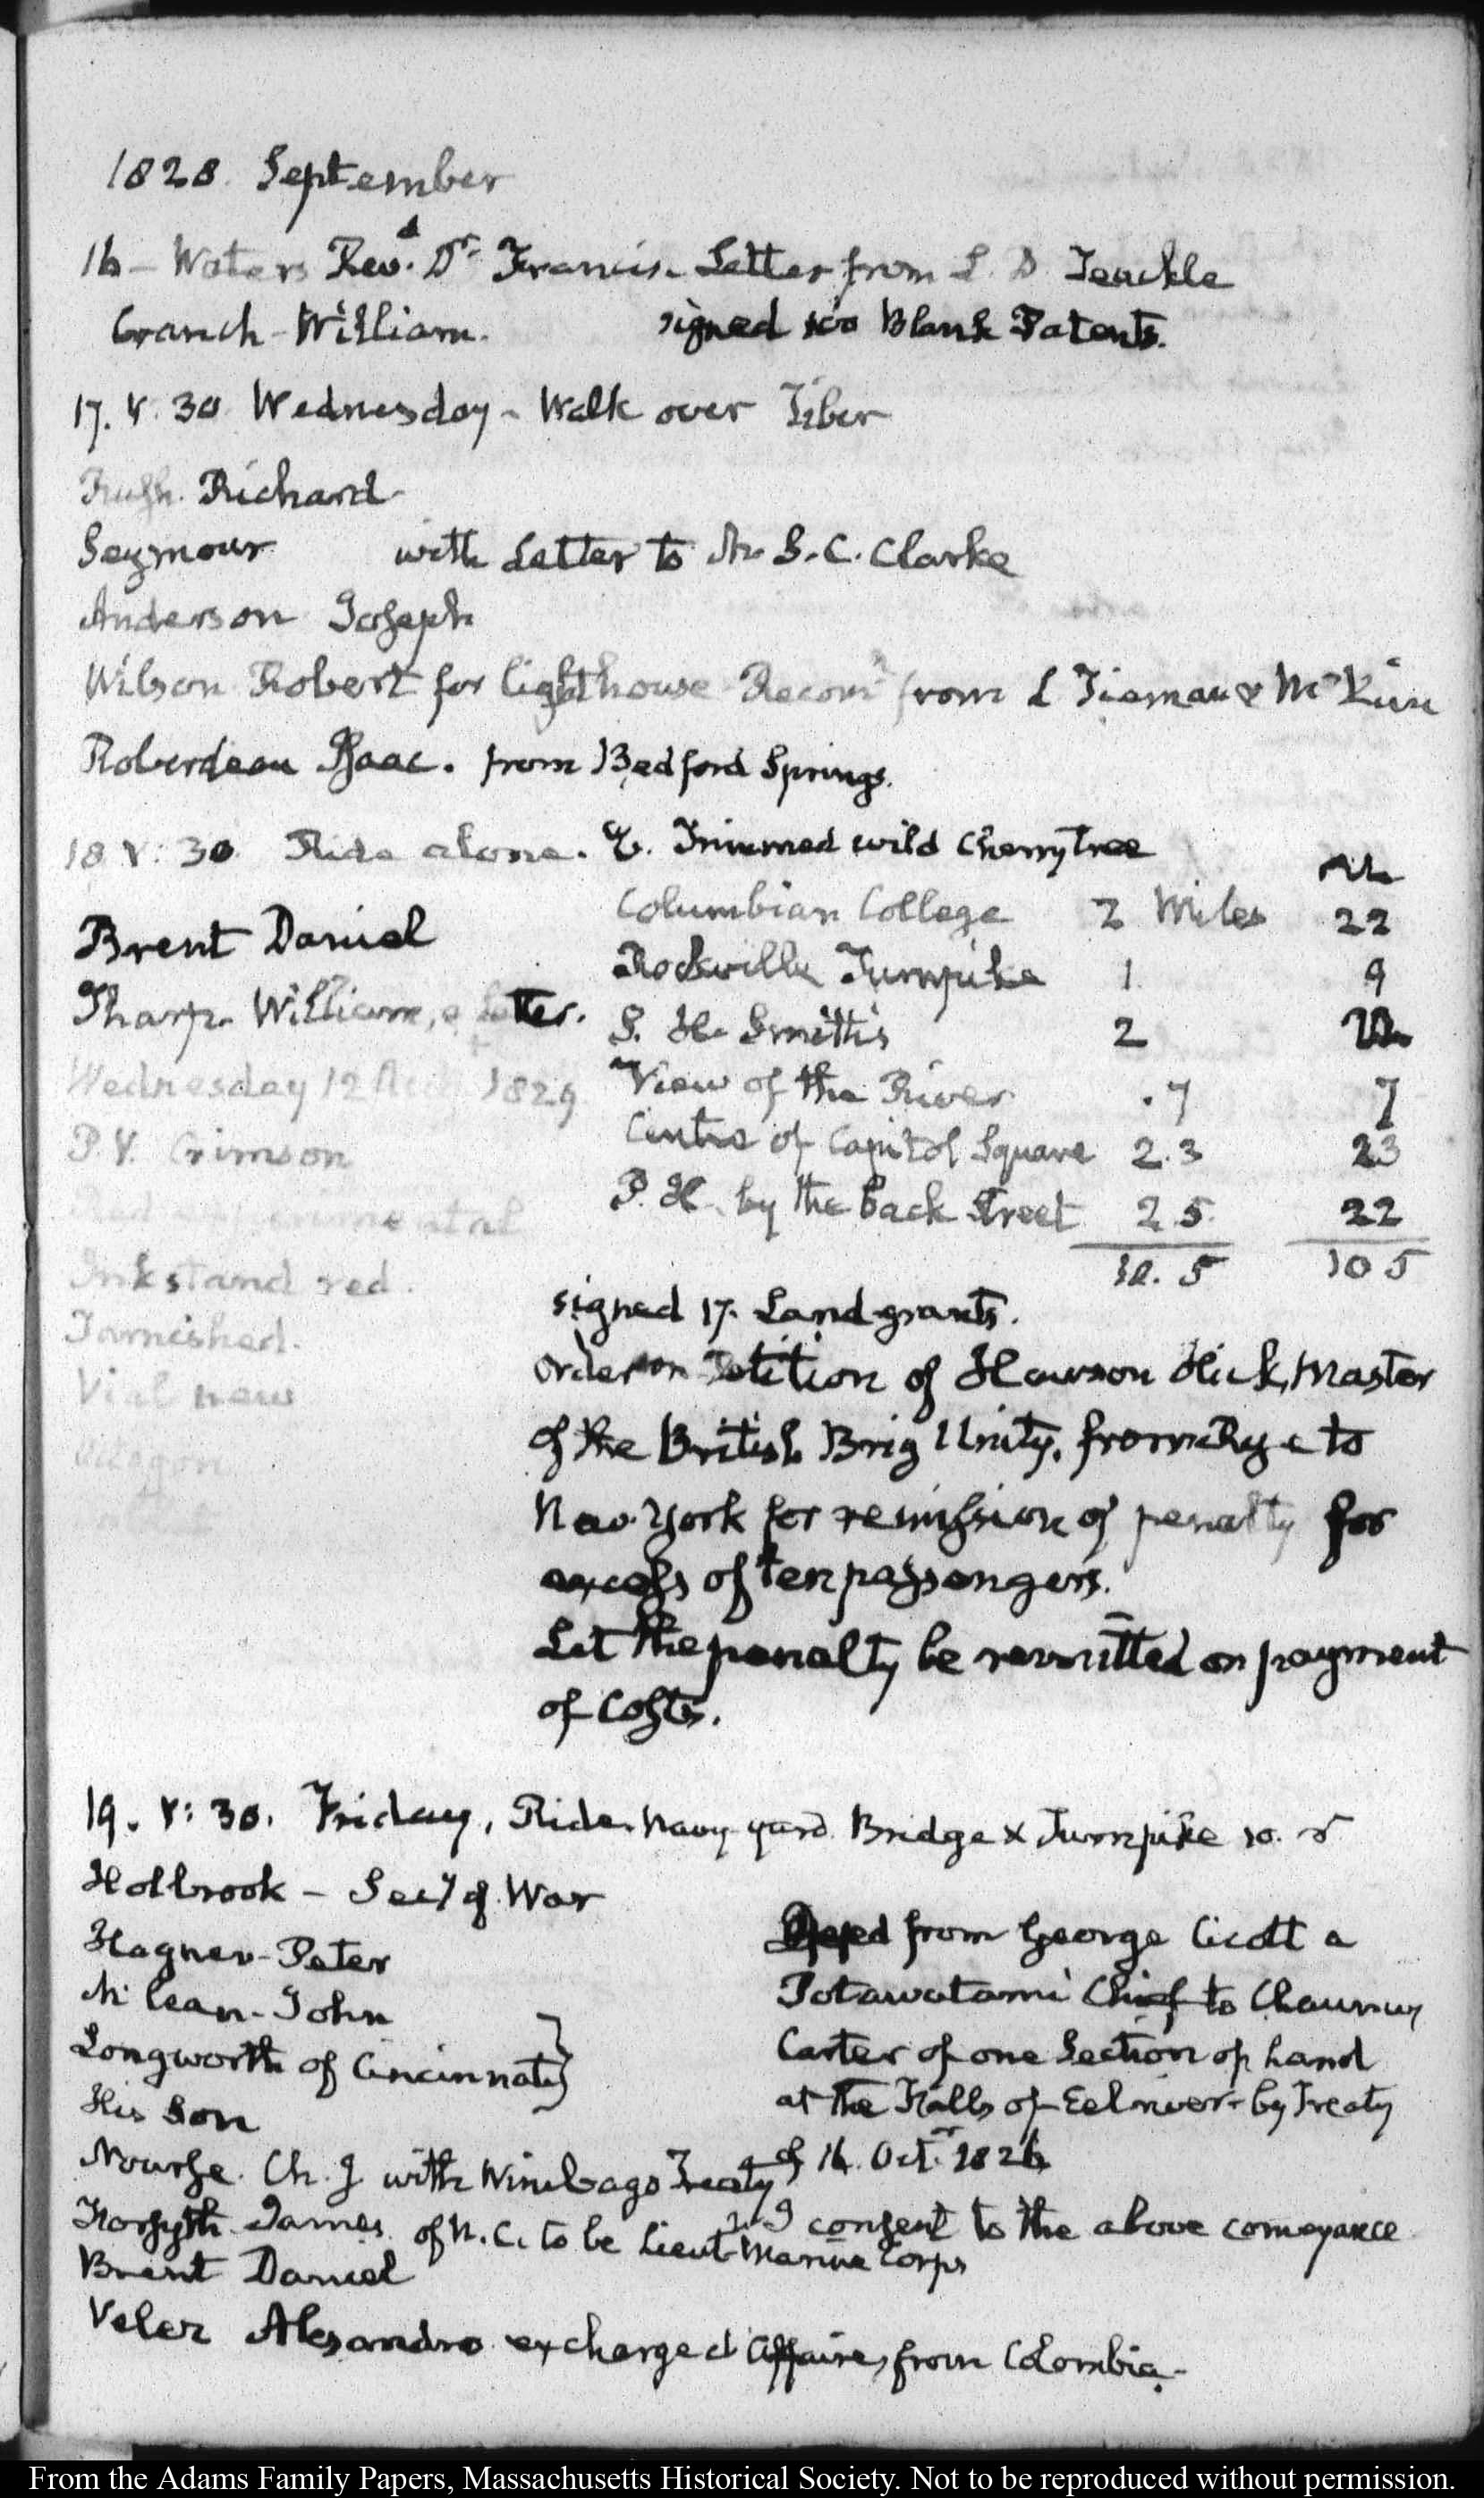 1828. September
16 - Waters Rev.d Dr Francis. Letter from L. D. Teackle
Cranch - William. signed 100 Blank Patents.
17. V. 30 Wednesday - Walk over Tiber
Rush. Richard
Seymour with Letter to Mr S. C. Clarke
Anderson Joseph
Wilson Robert for lighthouse Recom.n from L Tiernan & McKim
Roberdeau Isaac. from Bedford Springs.
18 V: 30 Ride alone. E. Trimmed wild Cherry Tree
Columbian College 2 Miles 22
Brent Daniel
Rockville Turnpike 1 9
Tharp. William, a letter.
S. H. Smith's 2 22
Wednesday 12 1829
View of the River .7 7
P. V. Crimson
Centre of Capitol Square 2.3 23
Red experimental
P. H. by the back Street 2.5 22
Inkstand red.
10.5 105
Tarnished.
signed 17. Land grants.
Vial new
Order on Petition of Hawson Hick, Master
of the British Brig Unity, from Rye to
New York for remission of penalty for
excess of ten passengers.
Let the penalty be remitted on payment
of Costs.
19. V: 30. Friday, Ride. Navy-yard Bridge & Turnpike 10. 5
Holbrook - Secy of War
Hagner - Peter
McLean - John
Longworth of Cincinnati }
His Son
Deed from George Cicott a
Potawatami Chief to Chauncey
Carter of one Section of Land
at the Falls of Eel river - by Treaty
of 16. Octr. 1826
Nourse. Ch. J with Winebago Treaty
I consent to the above conveyance
Forsyth. James. of N. C. to be Lieut Marine Corps
Brent Daniel
Velez Alesandro ex charge d'Affaires, from Colombia.
From the Adams Family Papers, Massachusetts Historical Society. Not to be reproduced without permission.